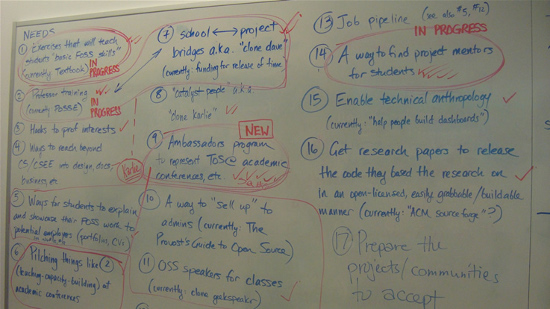 NEEDS
① Exercises that will teach
students basic FOSS skills"
(currently Textbook) IN
PROGRESS
② Professor training
(currently POSSE) IN
PROGRESS
③ Hooks to prof interests
④ Ways to reach beyond
CS/CSEE into design, docs,
business, etc
⑤ Ways for students to explain
and showcase their FOSS work to
potential employers (portfolios, CVs)
⑥ Pitching things like ②
(teaching-capacity-building) at
academic conferences
⑦ school ⟷ project
bridges a.k.a. "clone dave"
(currently: funding for release of time)
⑧ "catalyst people" a.k.a.
"clone Karlie"
NEW
⑨ Ambassadors program
to represent TOS @ academic
conferences, etc.
⑩ A way to "sell up" to
admins (currently: The
Provost's Guide to Open Source)
⑪ OSS speakers for classes
(currently: clone gdkspeaker)
⑬ Job pipeline (see also #5, #12)
IN PROGRESS
⑭ A way to find project mentors
for students
⑮ Enable technical anthropology
(currently: "help people build dashboards")
⑯ Get research papers to release
the code they based the research on
in an open-licensed, easily grabbable/buildable
manner (currently: "ACM, sourceforge"?)
⑰ Prepare the
projects/communities
to accept